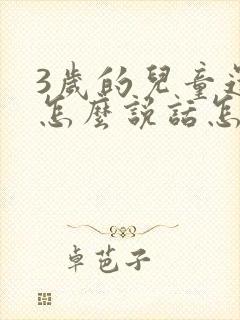 3歲的兒童還
怎麼說話怎
卓芭子